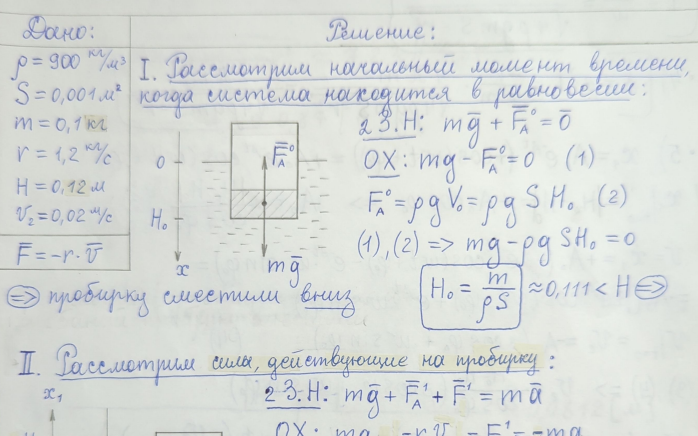 Дано:
ρ = 900 кг/м³
S = 0,001 м²
m = 0,1 кг
r = 1,2 кг/с
H = 0,12 м
v₂ = 0,02 м/с
F̅ = -r · v̅
Решение:
I. Рассмотрим начальный момент времени,
когда система находится в равновесии:
0
H₀
x
F̅_A⁰
mg̅
2 З.Н: mg̅ + F̅_A⁰ = 0̅
OX: mg - F_A⁰ = 0 (1)
F_A⁰ = ρgV₀ = ρgSH₀ (2)
(1), (2) => mg - ρgSH₀ = 0
H₀ = m/ρS ≈ 0,111 < H =>
=> пробирку сместили вниз
II. Рассмотрим силы, действующие на пробирку:
x₁
2 З.Н: mg̅ + F̅_A¹ + F̅¹ = ma̅